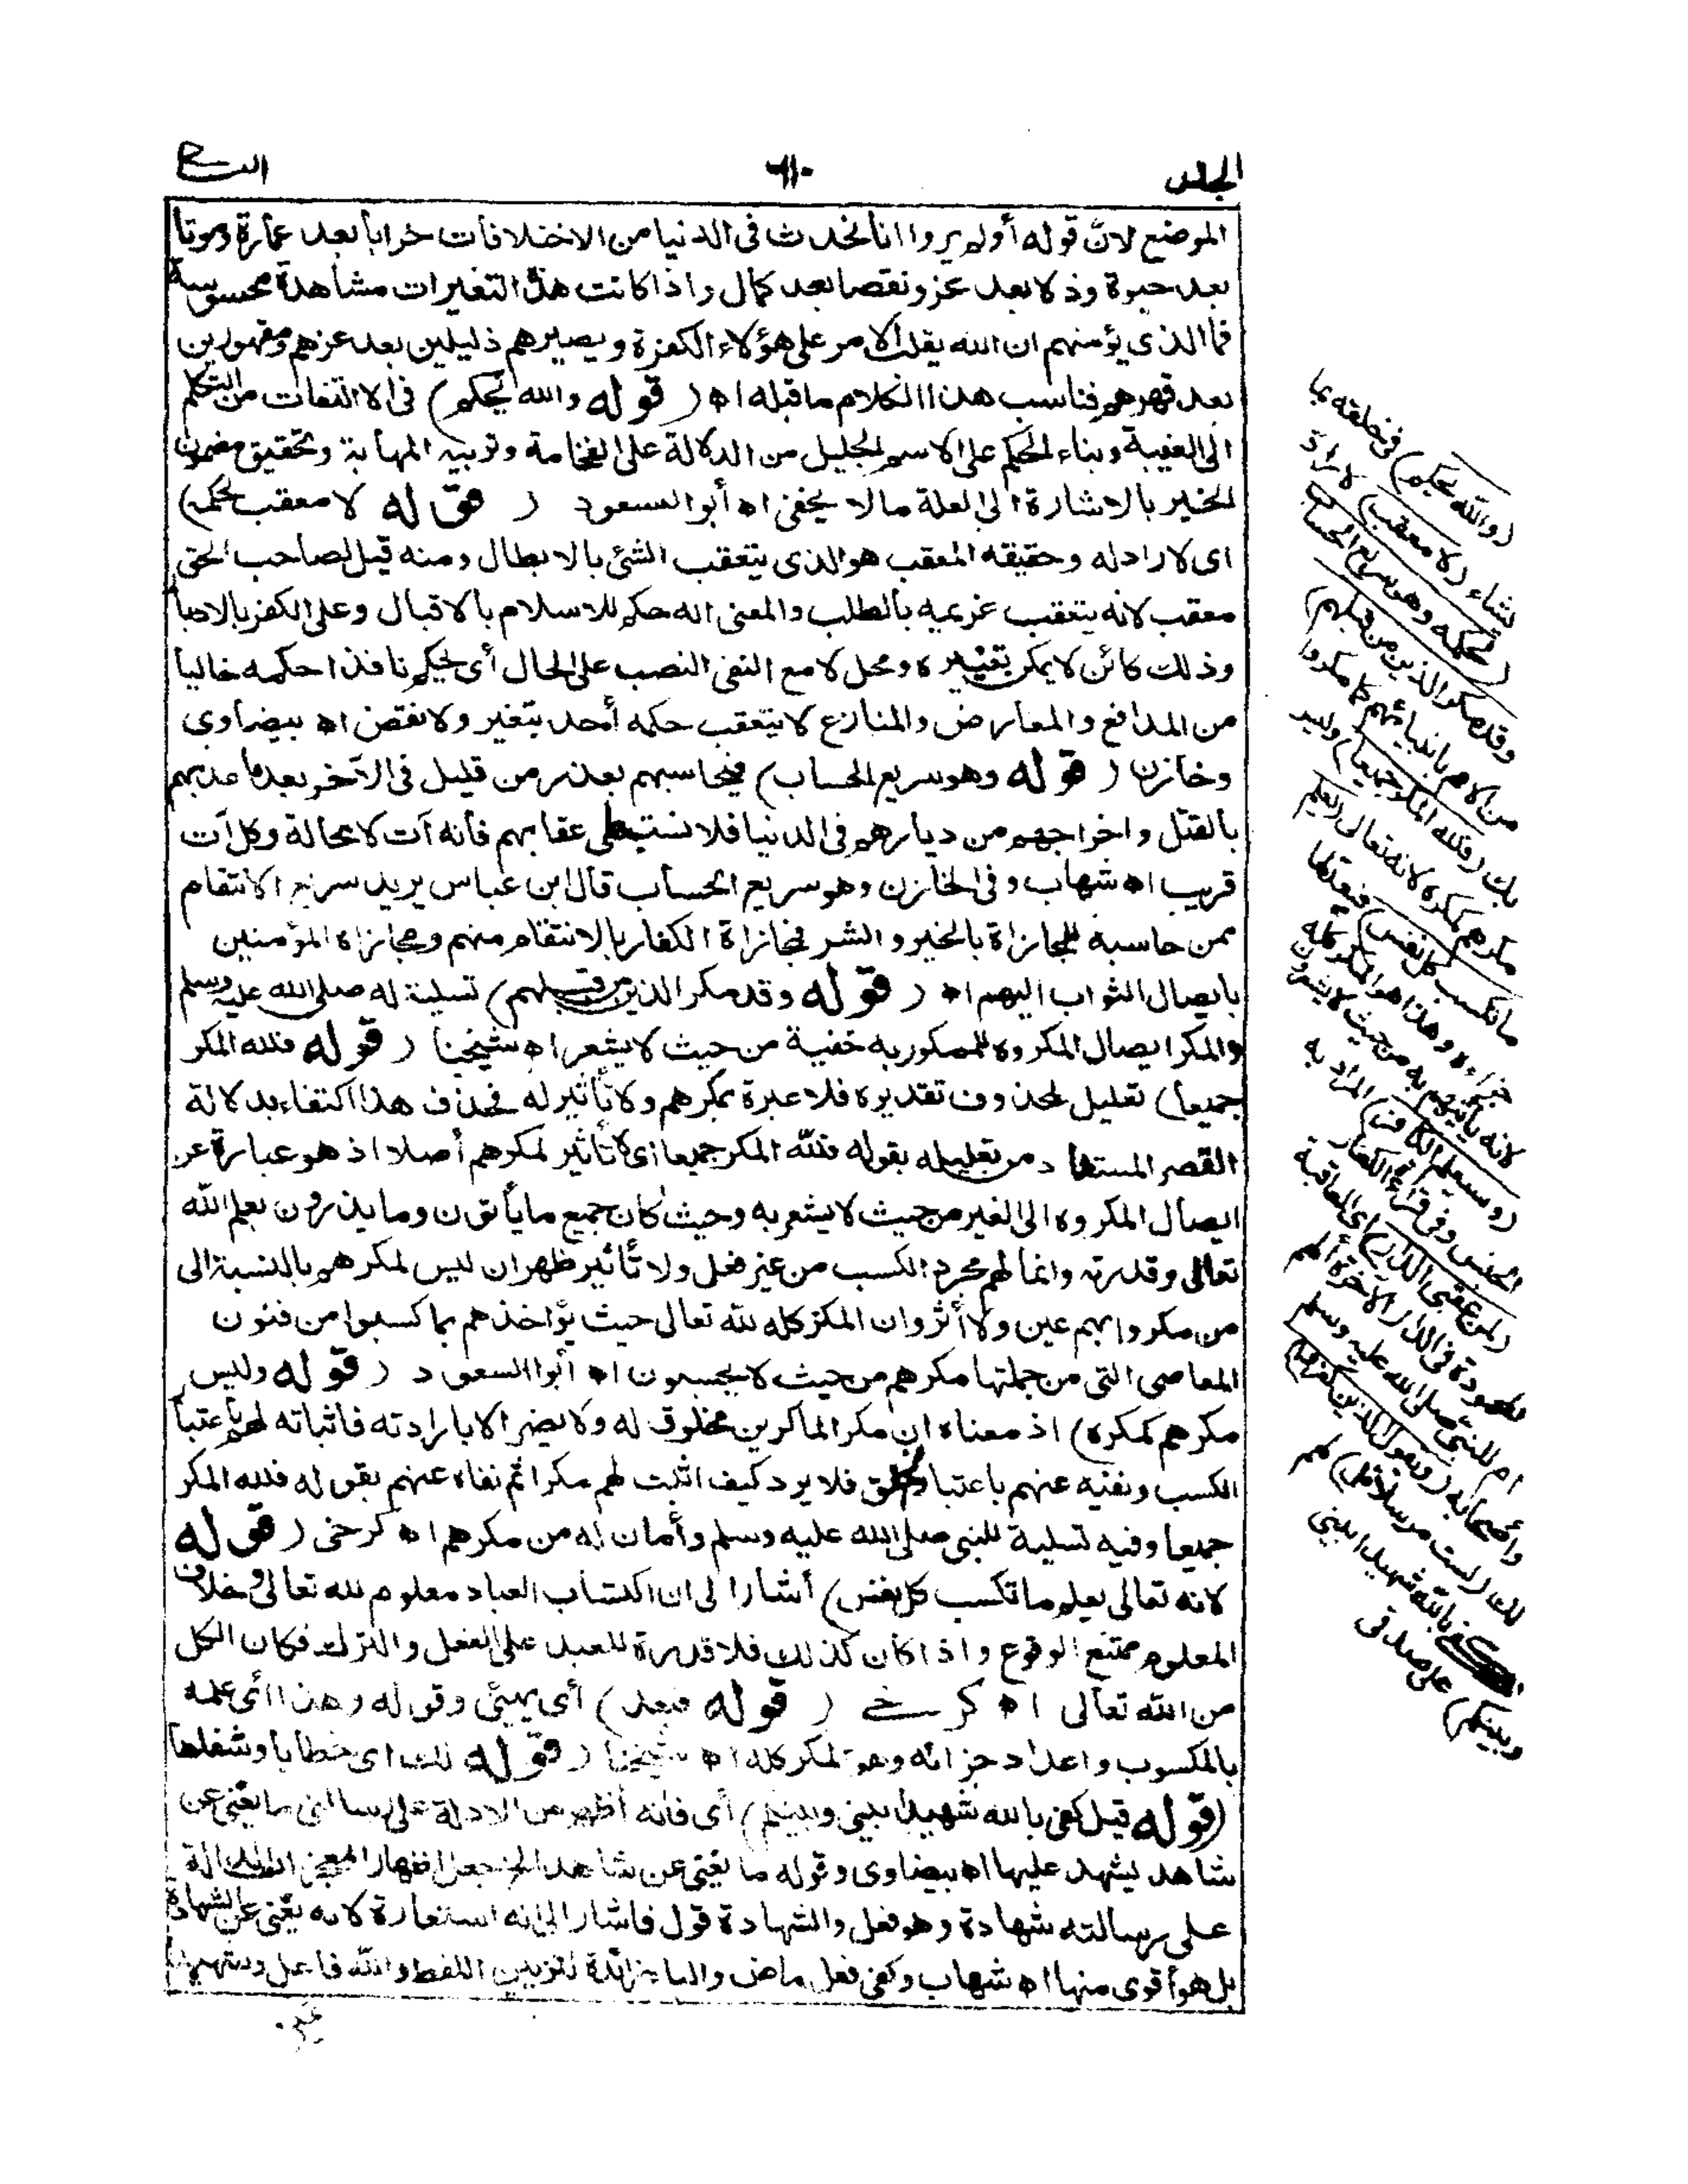 الجلد
٦١٠
الموضع لانّ قوله أولم يروا انا نحدث فى الدنيا من الاختلافات خرابا بعد عمارة وموتا
بعد حيوة وذلا بعد عز ونقصا بعد كمال واذا كانت هذه التغيرات مشاهدة محسوسة
فما الذى يؤمنهم ان الله يقلب الامر على هؤلاء الكفرة ويصيرهم ذليلين بعد عزهم ومقهورين
بعد قهرهم فناسب هذا الكلام ما قبله اه (قوله والله يحكم) فى الالتفات من التكلم
الى الغيبة وبناء الحكم على الاسم الجليل من الدلالة على الفخامة وتربية المهابة وتحقيق مضمون
الخبر بالاشارة الى العلة ما لا يخفى اه أبو السعود (قوله لا معقب لحكمه)
اى لا راد له وحقيقه المعقب هو الذى يتعقب الشئ بالابطال ومنه قيل لصاحب الحق
معقب لانه يتعقب غريمه بالطلب والمعنى انه حكم للاسلام بالاقبال وعلى الكفر بالادبا
وذلك كائن لا يمكن تغييره ومحل لا مع النفى النصب على الحال أى يحكم نافذا حكمه خاليا
من المدافع والمعارض والمنازع لا يتعقب حكمه أحد بتغير ولا نقص اه بيضاوى
وخازن (قوله وهو سريع الحساب) فيحاسبهم بعد زمن قليل فى الآخر بعد ما عذبهم
بالقتل واخراجهم من ديارهم فى الدنيا فلا تستبطى عقابهم فانه آت لا محالة وكل آت
قريب اه شهاب وفى الخازن وهو سريع الحساب قال ابن عباس يريد سريع الانتقام
ممن حاسبه للمجازاة بالخير والشر فجازاة الكفار بالانتقام منهم ومجازاة المؤمنين
بايصال الثواب اليهم اه (قوله وقد مكر الذين من قبلهم) تسلية له صلى الله عليه وسلم
والمكر ايصال المكروه للممكور به خفية من حيث لا يشعر اه شيخنا (قوله فلله المكر
جميعا) تعليل لمحذوف تقديره فلا عبرة بمكرهم ولا تأثير له فحذف هذا اكتفاء بدلالة
القصر المستفاد من تعليله بقوله فلله المكر جميعا اى لا تأثير لمكرهم أصلا اذ هو عبارة عن
ايصال المكروه الى الغير من حيث لا يشعر به وحيث كان جميع ما يأتون وما يذرون بعلم الله
تعالى وقدرته وانما لهم مجرد الكسب من غير فعل ولا تأثير ظهر ان ليس لمكرهم بالنسبة الى
من مكروا بهم عين ولا أثر وان المكر كله لله تعالى حيث يؤاخذهم بما كسبوا من فنون
المعاصى التى من جملتها مكرهم من حيث لا يحتسبون اه أبو السعود (قوله وليس
مكرهم كمكره) اذ معناه ان مكر الماكرين مخلوق له ولا يضر الا بارادته فاثباته لهم باعتبا
الكسب ونفيه عنهم باعتبار الخلق فلا يرد كيف اثبت لهم مكرا ثم نفاه عنهم بقوله فلله المكر
جميعا وفيه تسلية للنبى صلى الله عليه وسلم وأمان له من مكرهم اه كرخى (قوله
لانه تعالى يعلم ما تكسب كل نفس) أشار الى ان اكتساب العباد معلوم لله تعالى وخلاف
المعلوم ممتنع الوقوع واذا كان كذلك فلا قدرة للعبد على الفعل والترك فكان الكل
من الله تعالى اه كرخى (قوله فيعد) أى يهيئ وقوله وهذا أى علمه
بالمكسوب واعداد جزائه وهو المكر كله اه شيخنا (قوله لك اى خطابا وشفاها
(قوله قيل كفى بالله شهيدا بينى وبينكم) أى فانه أظهر من الادلة على رسالتى ما يغنى عن
شاهد يشهد عليها اه بيضاوى وقوله ما يغنى عن شاهد الخ جعل اظهار المعجزات الدالة
على رسالته شهادة وهو فعل والشهادة قول فاشار الى انه استعارة لانه يغنى عن الشهادة
بل هو أقوى منها اه شهاب وكفى فعل ماض والباء زائدة لتزيين اللفظ والله فاعل وشهيدا
(والله يحكم) فى خلقه بما
يشاء (لا معقب) لا راد
(لحكمه وهو سريع الحساب
وقد مكر الذين من قبلهم)
من الامم بانبيائهم كما مكروا
بك (فلله المكر جميعا) وليس
مكرهم كمكره لانه تعالى (يعلم
ما تكسب كل نفس) فيعد لها
جزاءه وهذا هو المكر كله
لانه يأتيهم به من حيث لا يشعرون
(وسيعلم الكافر) المراد به
الجنس وفى قراءة الكفار
(لمن عقبى الدار) اى العاقبة
المحمودة فى الدار الآخرة ألهم
ام للنبى صلى الله عليه وسلم
وأصحابه (ويقول الذين كفروا)
لك (لست مرسلا قل) لهم
كفى بالله شهيدا بينى
وبينكم) على صدقى